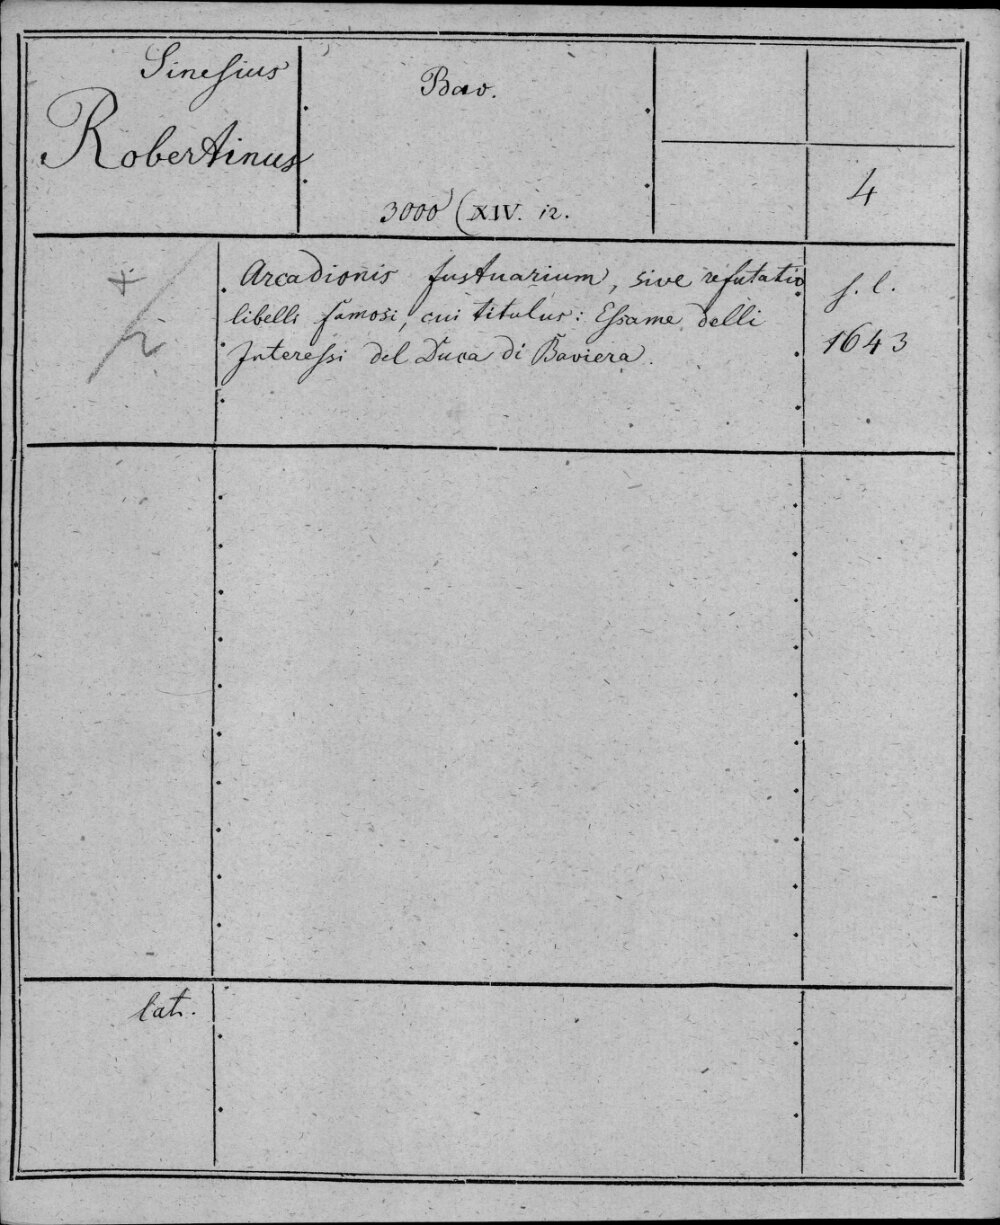 Sinesius
Robertinus
Bav.
3000 (XIV. 12.
4
Arcadionis fustuarium, sive refutatio
libelli famosi, cui titulus: Essame delli
Interessi del Duca di Baviera.
s. l.
1643
lat.